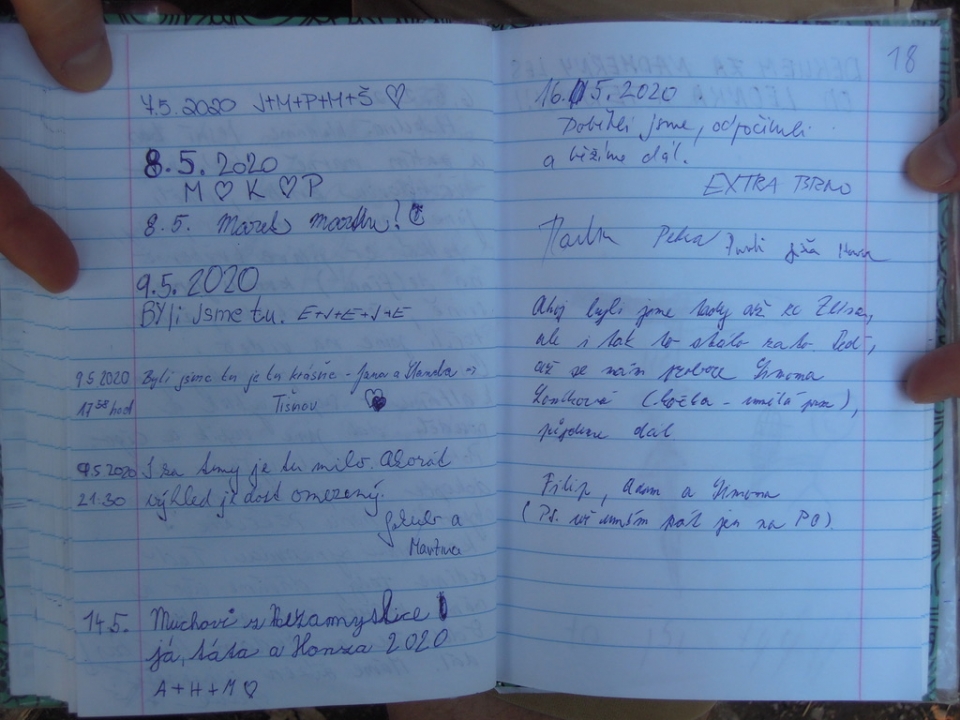 7.5.2020 J+M+P+M+Š ♡
8.5.2020
M ♡ K ♡ P
8.5. Marek
9.5.2020
BYli jsme tu. E+J+E+J+E
9.5.2020 Byli jsme tu je tu krásně - Jana a
17 58 hod Tišnov ♡
9.5.2020 I za tmy je tu milo. Akorát
21.30 výhled je dost omezený.
Jakub a
Martina
14.5. Muchovi z Bezamyslice
já, táta a Honza 2020
A+H+M ♡
18
16.5.2020.
Doběhli jsme, odpočinuli
a běžíme dál.
EXTRA BRNO
Petra Jíťa
Ahoj byli jsme tady až ke
ale i tak to stálo za to. Teď,
až se nám Simona
(ložka - umělá),
půjdeme dál
Filip, Adam a Simona
(Ps. už umím psát jen na PC).